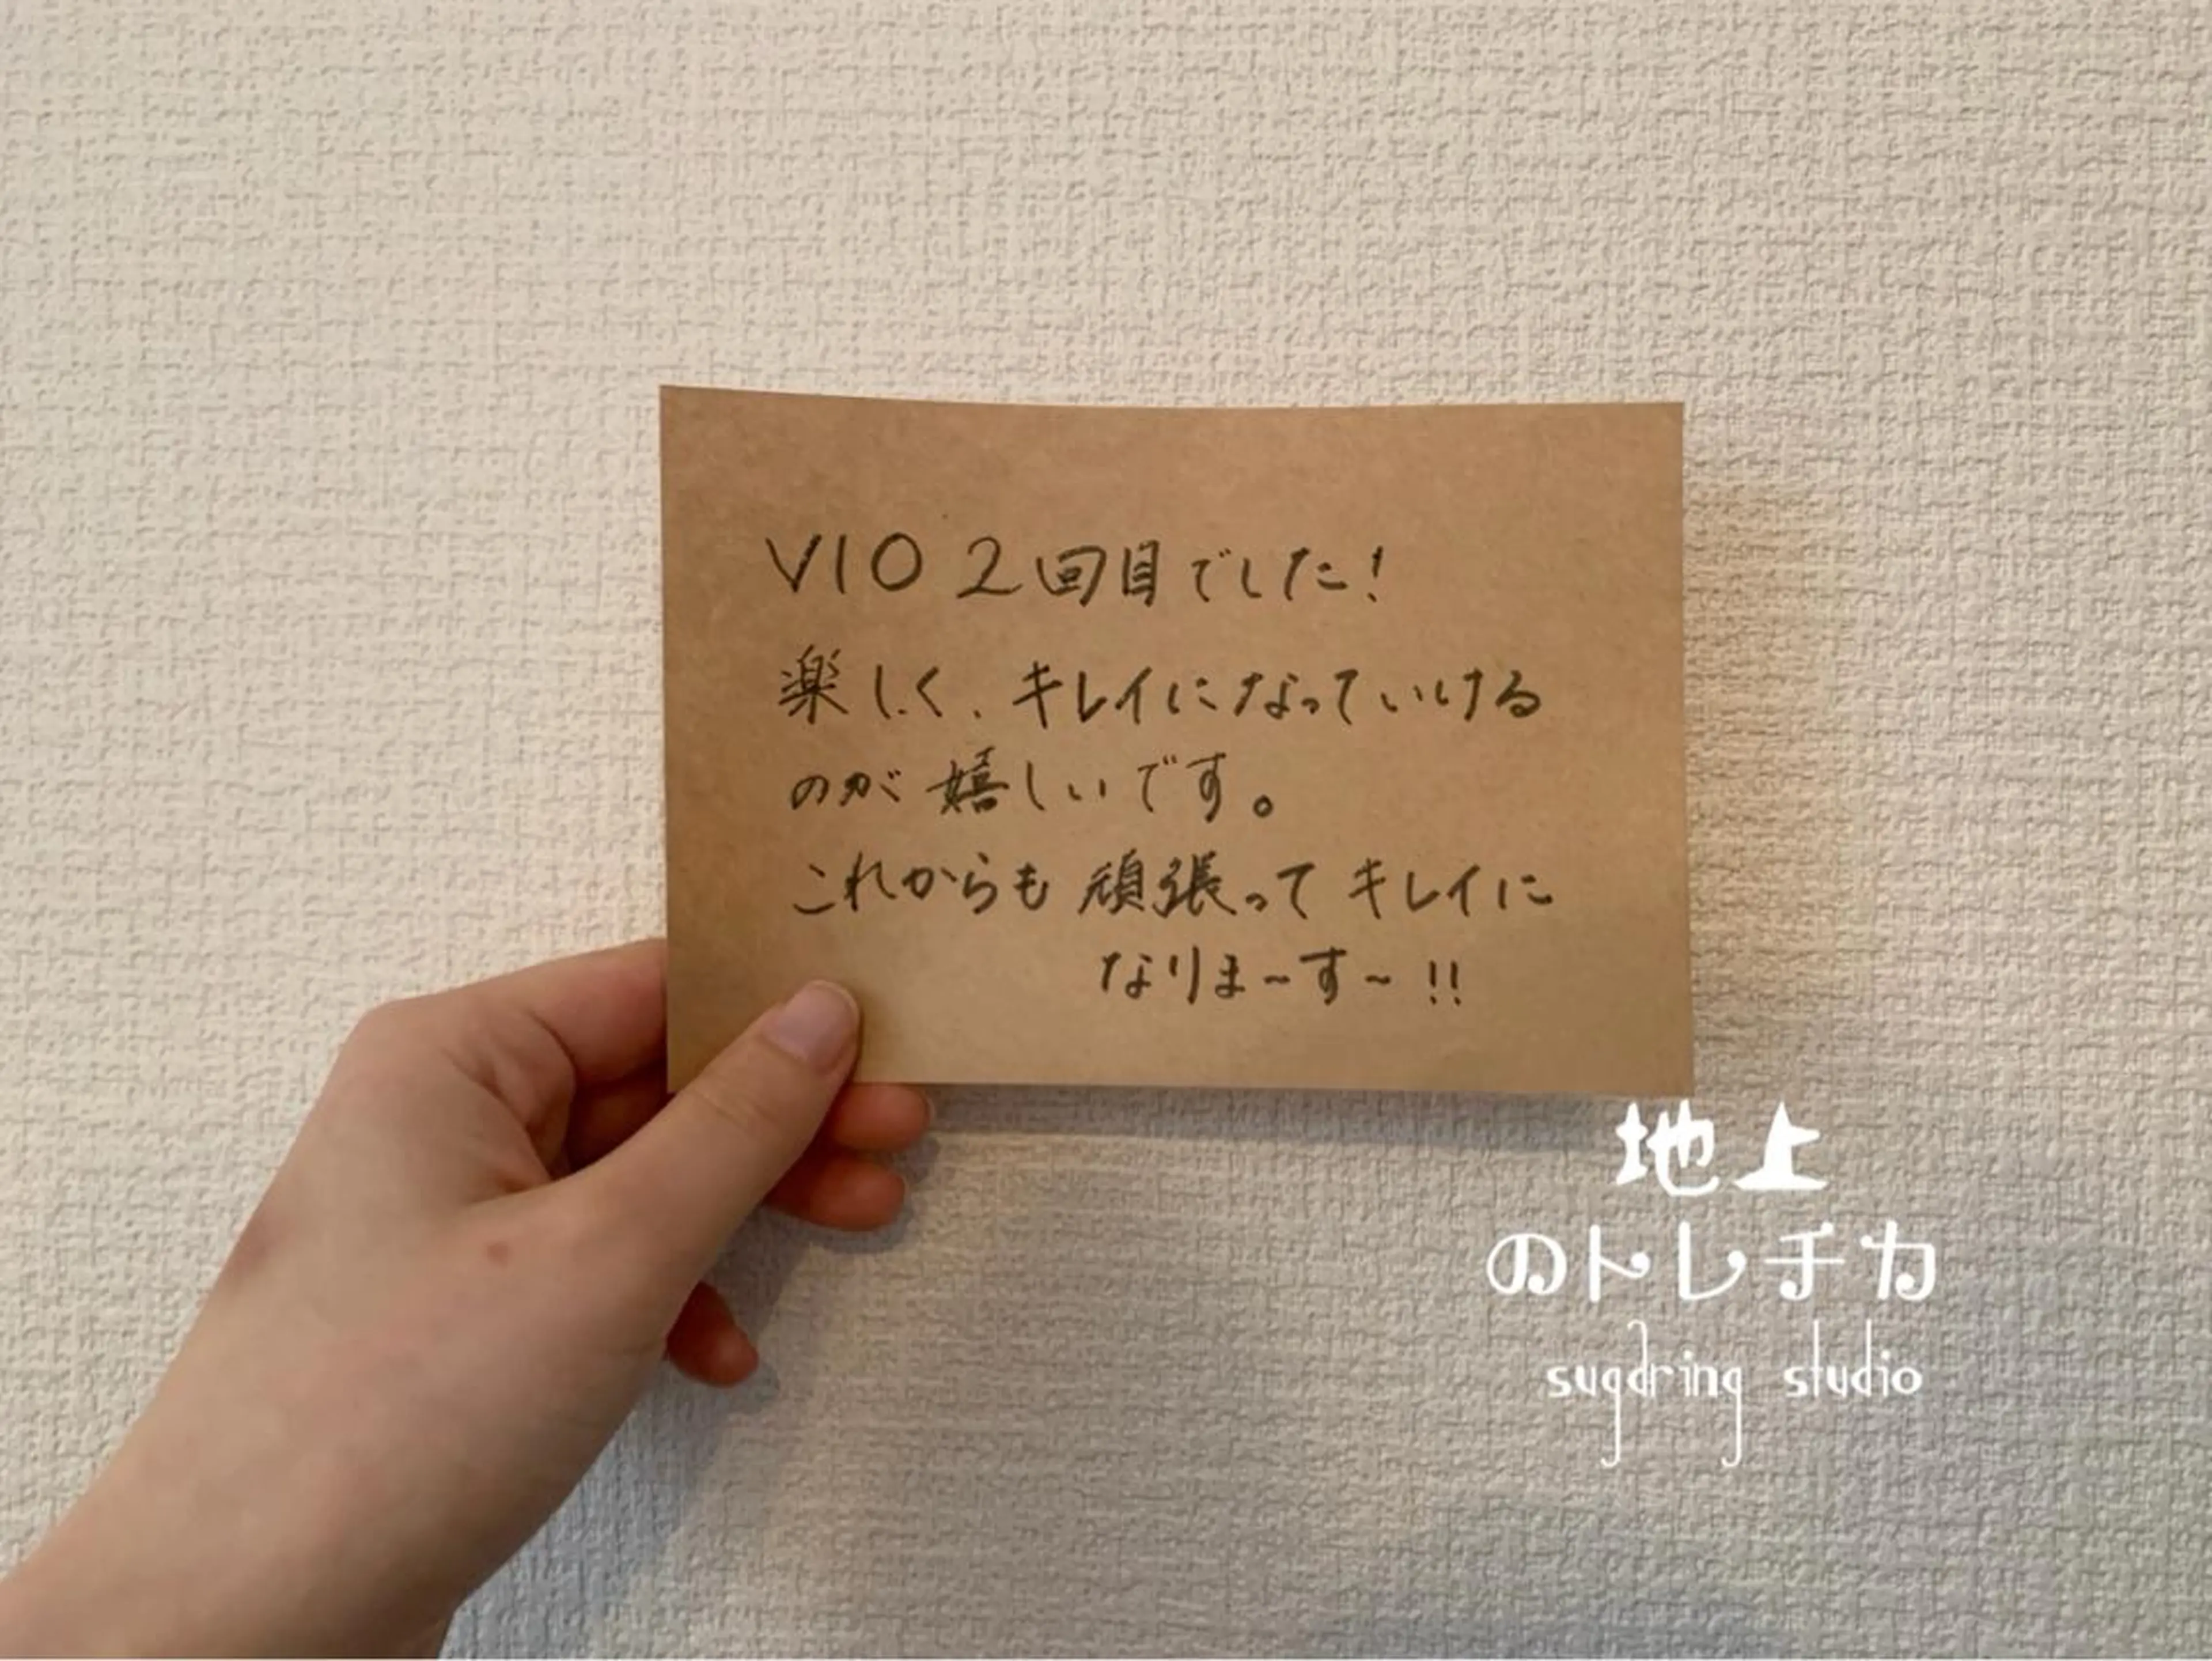 VIO 2回目でした!
楽しく、キレイになっていける
のが嬉しいです。
これからも頑張ってキレイに
なりま~す~!!
地上
のトレチカ
sugaring studio